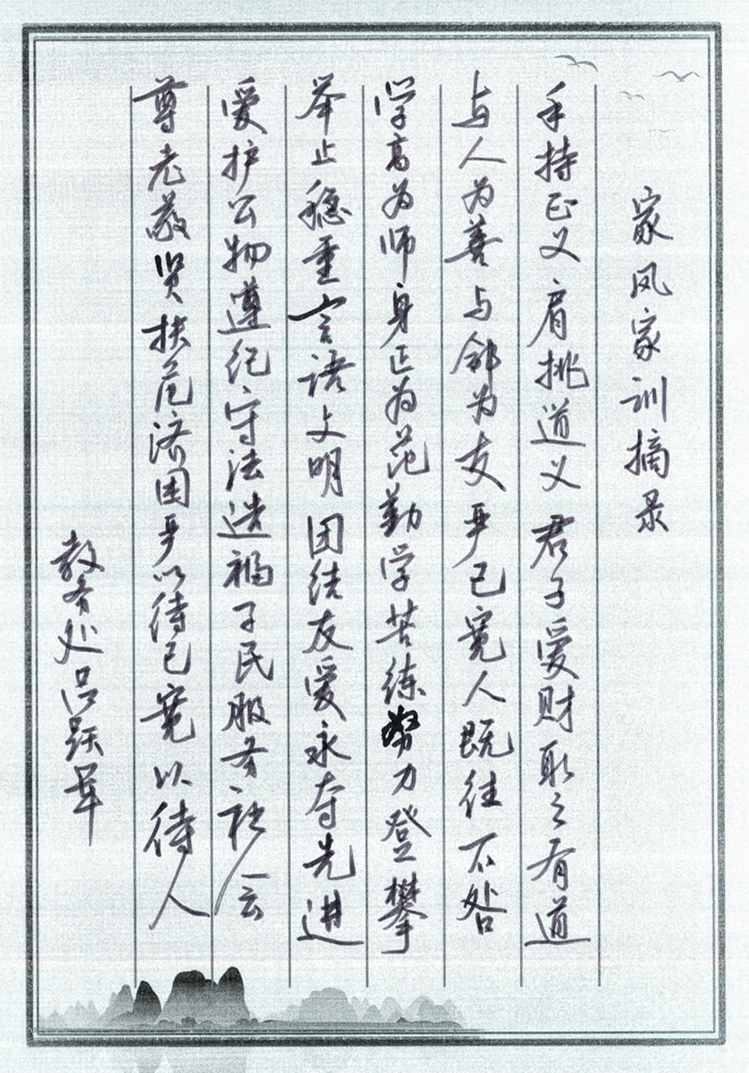 家风家训摘录
手持正义肩挑道义君子爱财取之有道
与人为善与邻为友严己宽人既往不咎
学高为师身正为范勤学苦练努力登攀
举止稳重言语文明团结友爱永夺先进
爱护公物遵纪守法造福于民服务社会
尊老敬贤扶危济困严待己宽以待人
教务处吕跃军